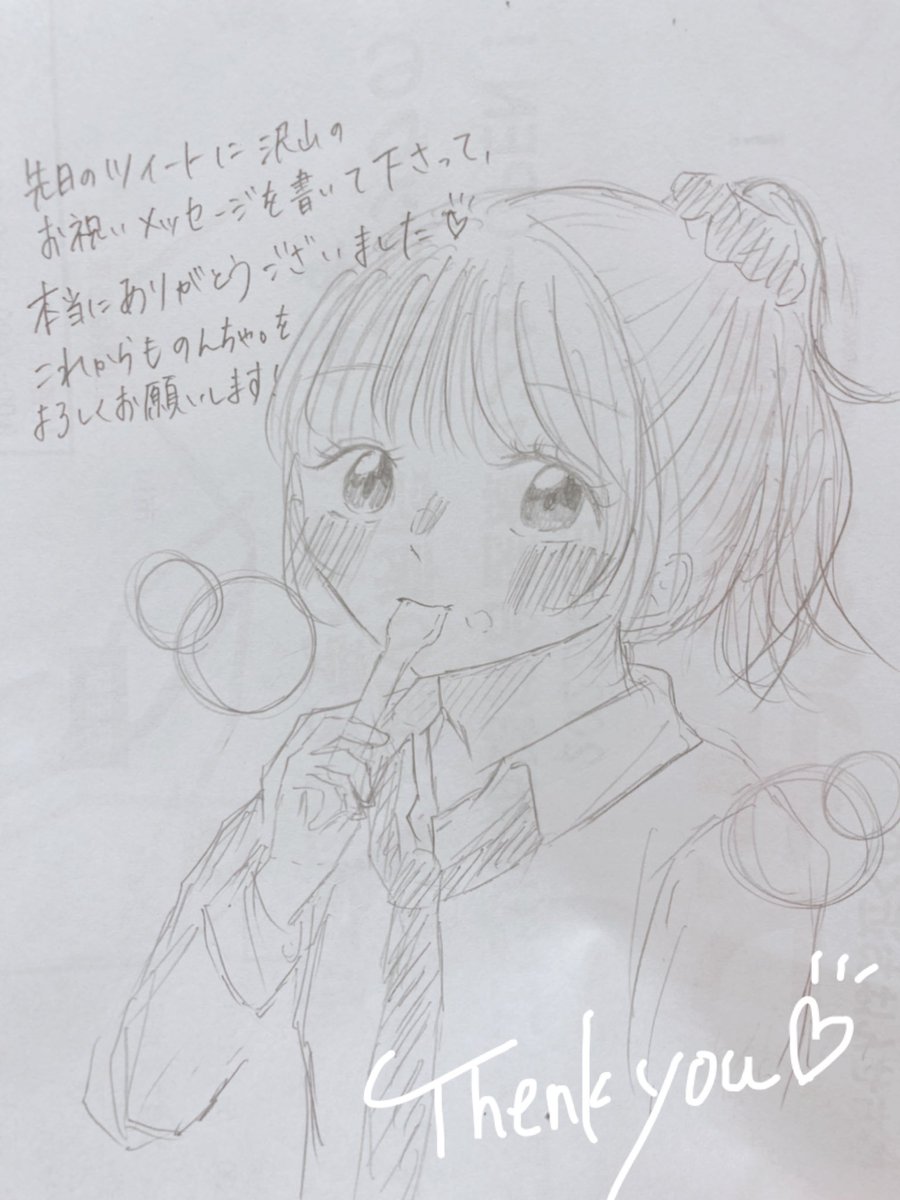 先日のツイートに沢山の
お祝いメッセージを書いて下さって、
本当にありがとうございました♡
これからものんちゃ。を
よろしくお願いします!
Thenk you♡